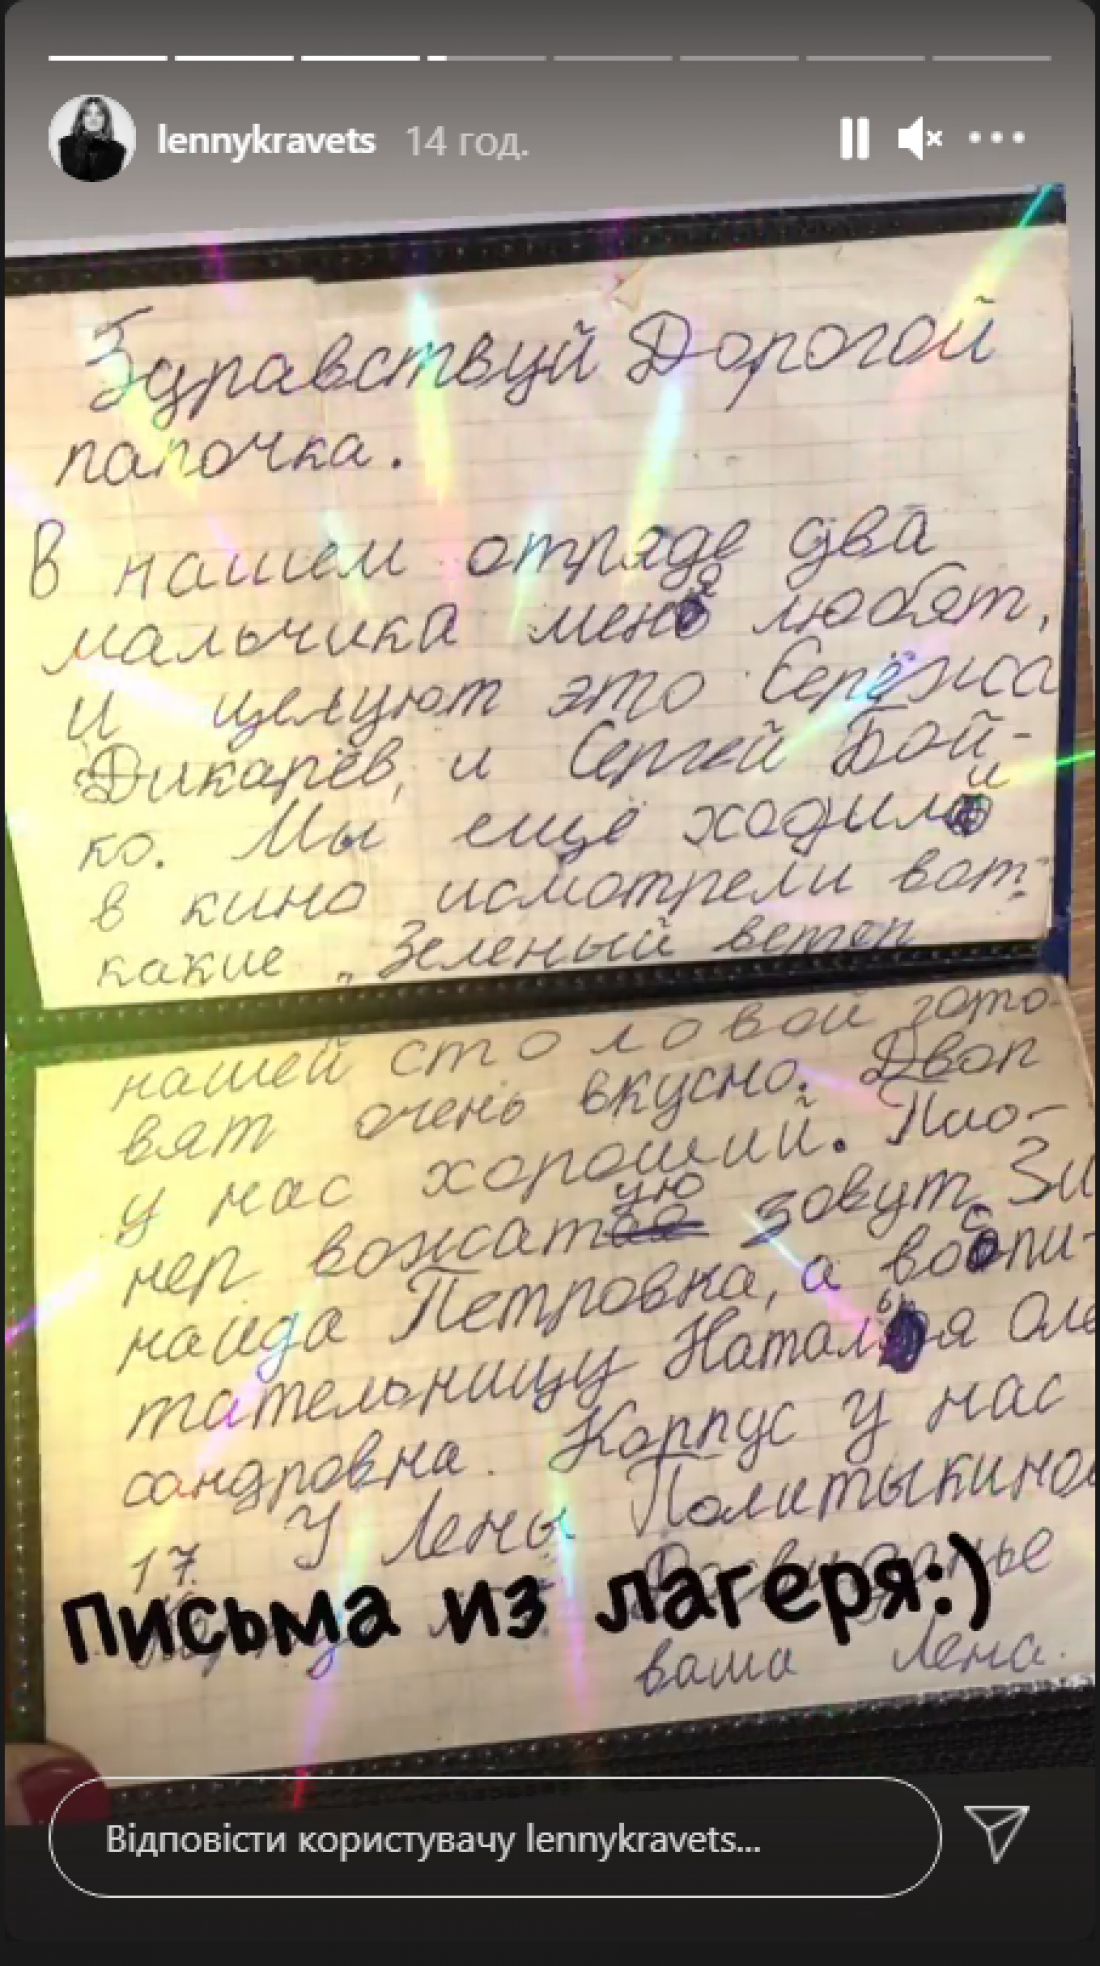 lennykravets 14 год.
Здравствуй Дорогой
папочка.
В нашем отряде два
мальчика меня любят,
и целуют это Серёжа
Дикарёв, и Сергей Бой-
ко. Мы ещё ходили
в кино исмотрели вот
какие „Зеленый ветер
нашей столовой гото
вят очень вкусно. Двор
у нас хороший. Пио-
нер вожатую зовут Зи
наида Петровна, а воспи-
тательницу Наталья Оле
сандровна. Корпус у нас
17. У Лены Политыкиной
Досвиданье
Письма из лагеря:)
ваша Лена.
Відповісти користувачу lennykravets...